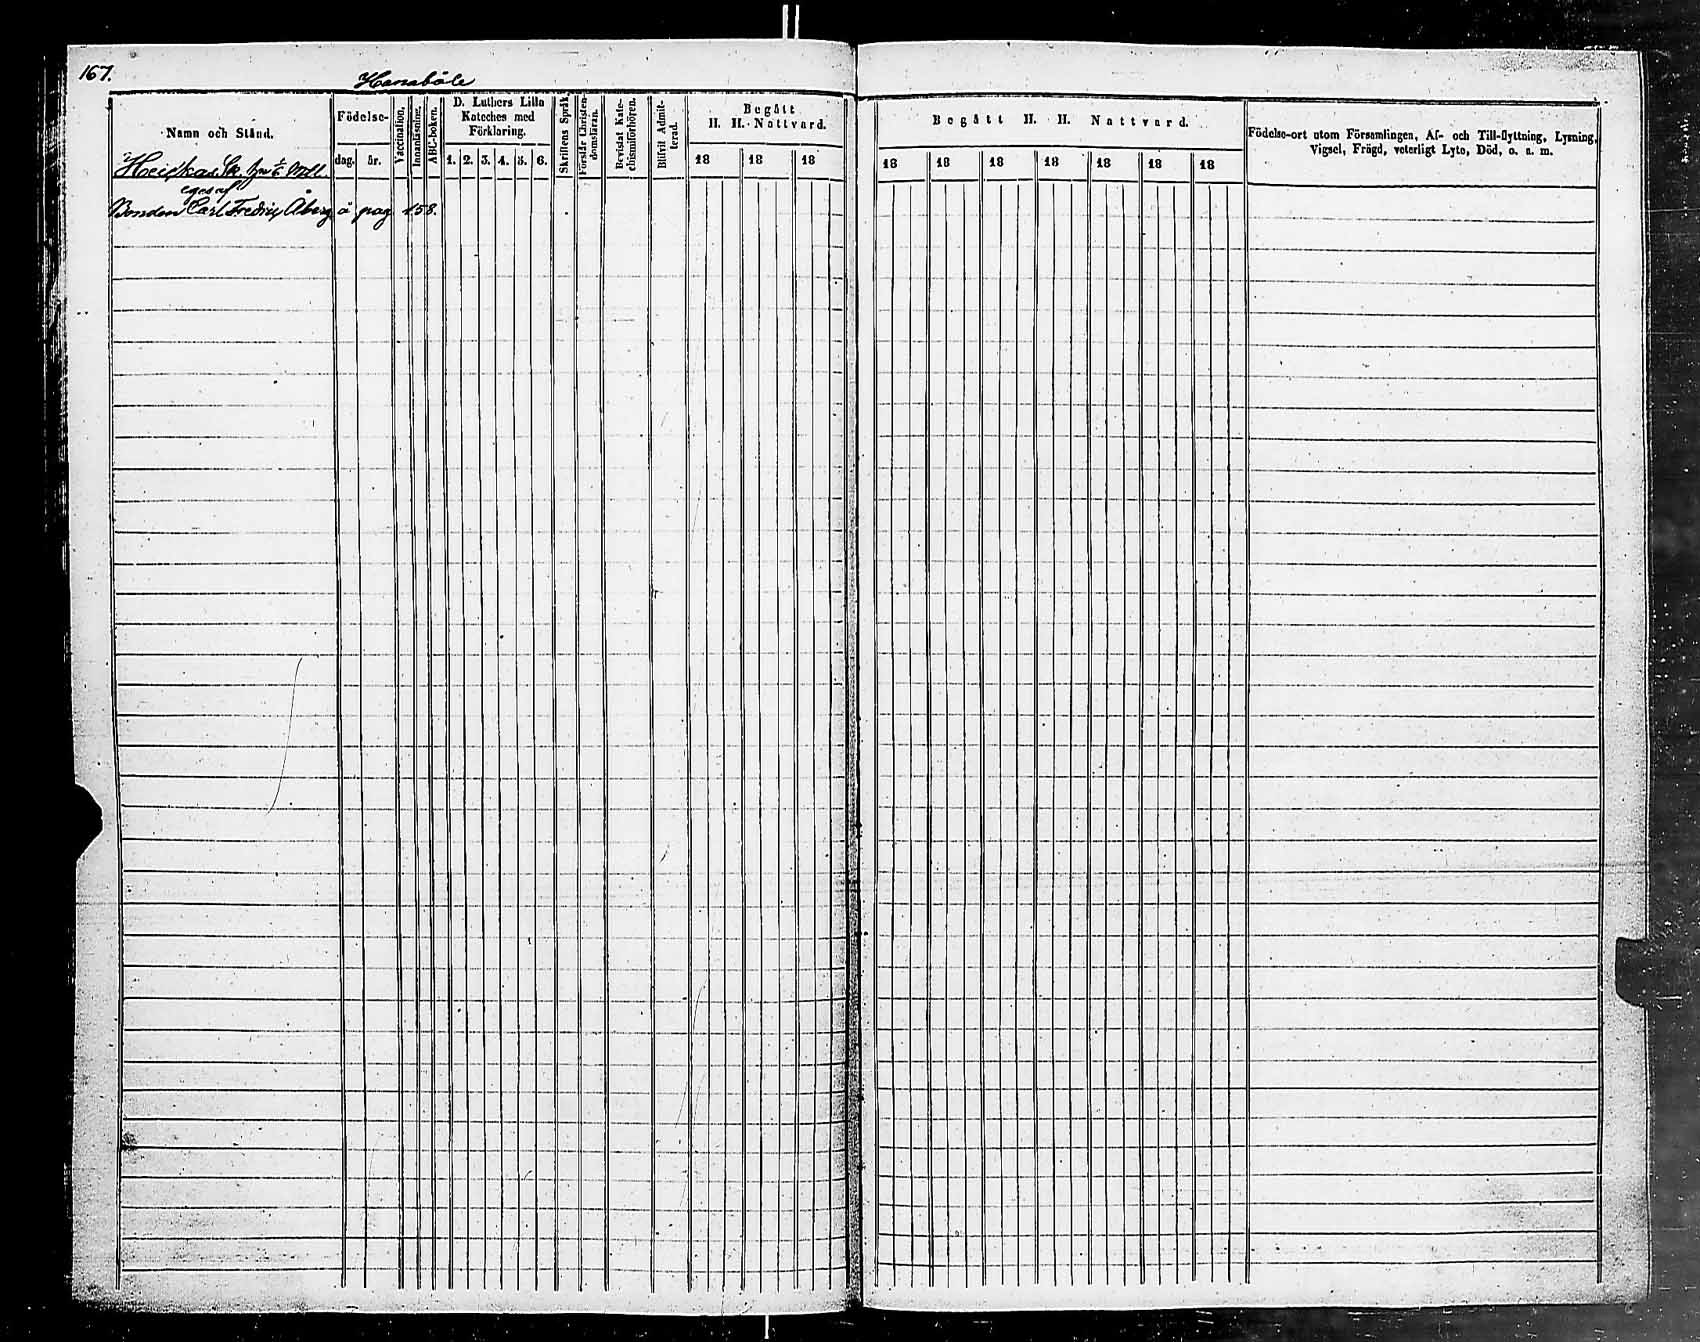 167.
Hanabäle
Namn och Stånd.
Födelse-
dag. år.
Vaccination.
Innanläsning.
ABC-boken.
D. Luthers Lilla Kateches med Förklaring.
1. 2. 3. 4. 5. 6.
Skriftens Språk.
Förstår Christendomsläran.
Bevistat Katechismiförhören.
Blifvit Admitterad.
Begått H. H. Nattvard.
18 18 18
Begått H. H. Nattvard.
18 18 18 18 18 18 18
Födelse-ort utom Församlingen, Af- och Till-flyttning, Lysning,
Vigsel, Frägd, veterligt Lyte, Död, o. s. m.
Heickas Sk.
eges af
Bonden Carl Fredric Åberg å pag 158.